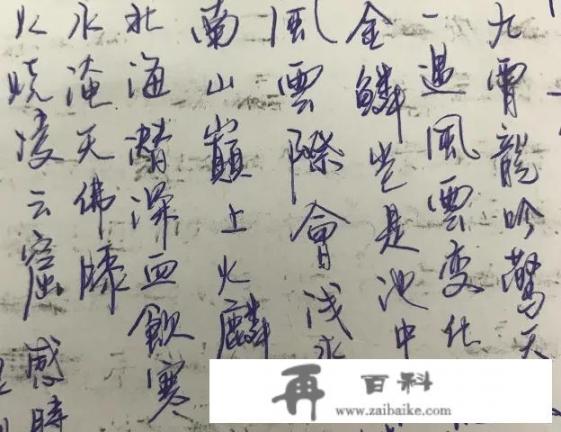 九霄龍吟驚天
一遇風雲变化
金鳞岂是池中
風雲際會浅水
南山巔上火麟
北海潜深血飲寒
水淹天佛膝
火烧凌云窟 感時
再百科
www.zaibaike.com